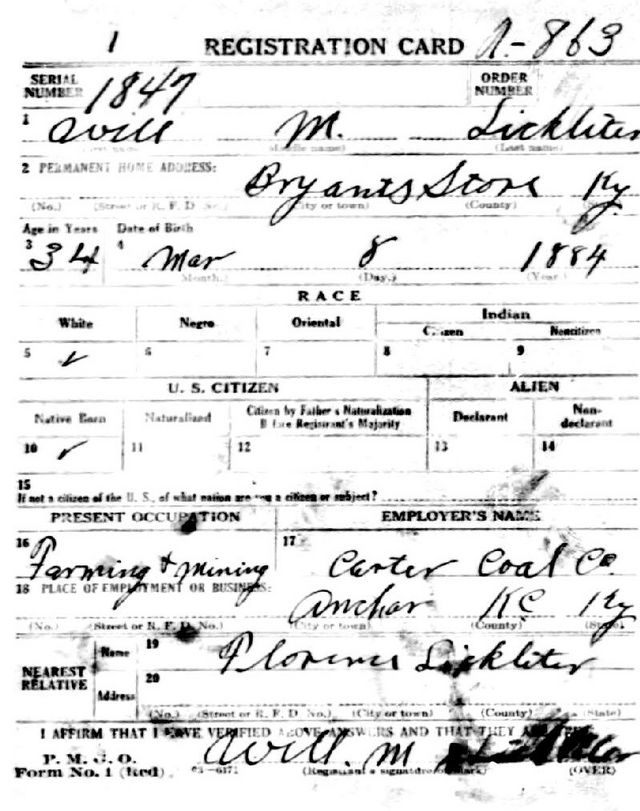 1 REGISTRATION CARD A-863
SERIAL NUMBER 1847 ORDER NUMBER
1 Will M. Lickliter
(Middle name) (Last name)
2 PERMANENT HOME ADDRESS: Bryants Store Ky
(No.) (Street or R. F. D. No.) (City or town) (County)
Age in Years Date of Birth
3 34 4 Mar 8 1884
(Month.) (Day.) (Year.)
RACE
White Negro Oriental Indian
Citizen Noncitizen
5 ✓ 6 7 8 9
U. S. CITIZEN ALIEN
Native Born Naturalized Citizen by Father's Naturalization Before Registrant's Majority Declarant Non-declarant
10 ✓ 11 12 13 14
15
If not a citizen of the U. S., of what nation are you a citizen or subject?
PRESENT OCCUPATION EMPLOYER'S NAME
16 Farming & mining 17 Carter Coal Co
18 PLACE OF EMPLOYMENT OR BUSINESS:
Anchar KC Ky
(No.) (Street or R. F. D. No.) (City or town) (County) (State)
NEAREST RELATIVE Name 19 Florence Lickliter
Address 20
(No.) (Street or R. F. D. No.) (City or town) (County) (State)
I AFFIRM THAT I HAVE VERIFIED ABOVE ANSWERS AND THAT THEY ARE
P. M. G. O.
Form No. 1 (Red) 03—6171 Will. M
(Registrant's signature or mark) (OVER)